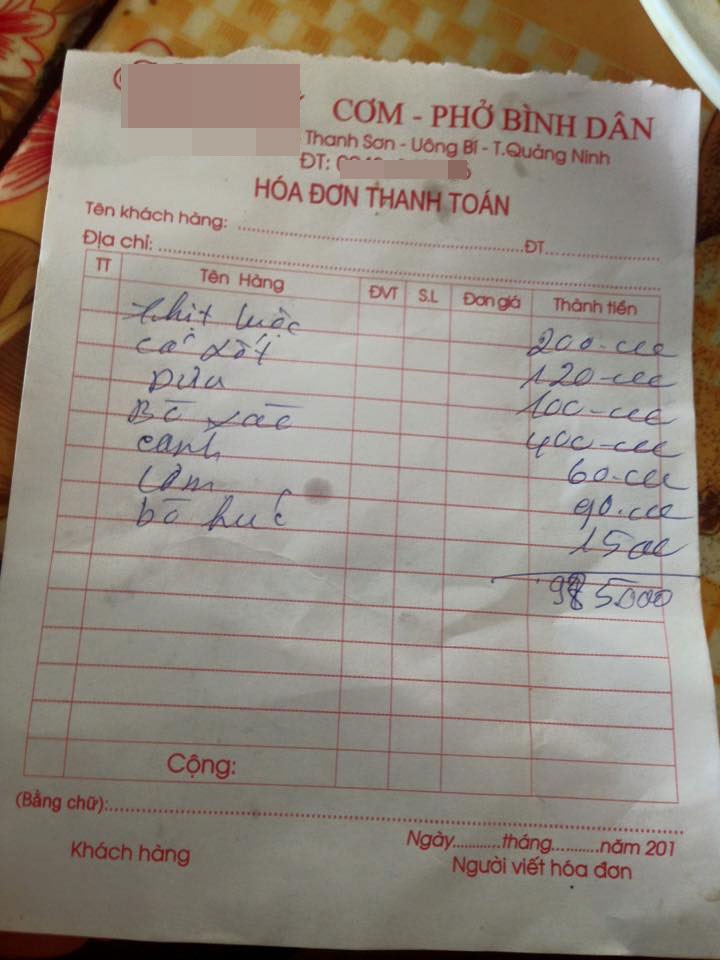 CƠM - PHỞ BÌNH DÂN
Thanh Sơn - Uông Bí - T.Quảng Ninh
ĐT:
HÓA ĐƠN THANH TOÁN
Tên khách hàng: ........................ĐT........................
Địa chỉ: ........................
TT Tên Hàng ĐVT S.L Đơn giá Thành tiền
thịt luộc 200.000
cá sốt 120.000
Dưa 100.000
Bò xào 400.000
canh 60.000
cơm 90.000
bò húc 15000
985.000
Cộng:
(Bằng chữ):........................
Ngày...........tháng...........năm 201
Khách hàng Người viết hóa đơn